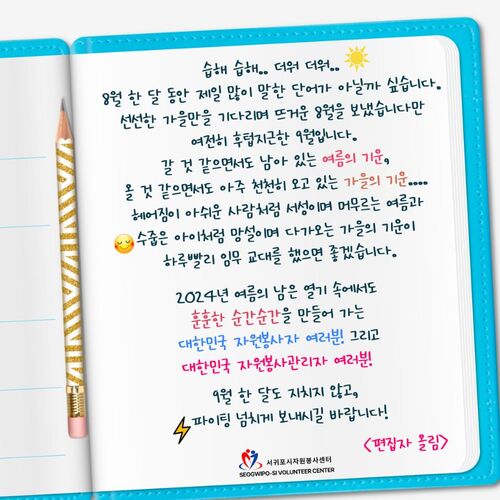 습해 습해.. 더워 더워..
8월 한 달 동안 제일 많이 말한 단어가 아닐까 싶습니다.
선선한 가을만을 기다리며 뜨거운 8월을 보냈습니다만
여전히 후텁지근한 9월입니다.
갈 것 같으면서도 남아 있는 여름의 기운,
올 것 같으면서도 아주 천천히 오고 있는 가을의 기운....
헤어짐이 아쉬운 사람처럼 서성이며 머무르는 여름과
수줍은 아이처럼 망설이며 다가오는 가을의 기운이
하루빨리 임무 교대를 했으면 좋겠습니다.
2024년 여름의 남은 열기 속에서도
훈훈한 순간순간을 만들어 가는
대한민국 자원봉사자 여러분! 그리고
대한민국 자원봉사관리자 여러분!
9월 한 달도 지치지 않고,
파이팅 넘치게 보내시길 바랍니다!
<편집자 올림>
서귀포시자원봉사센터
SEOGWIPO-SI VOLUNTEER CENTER